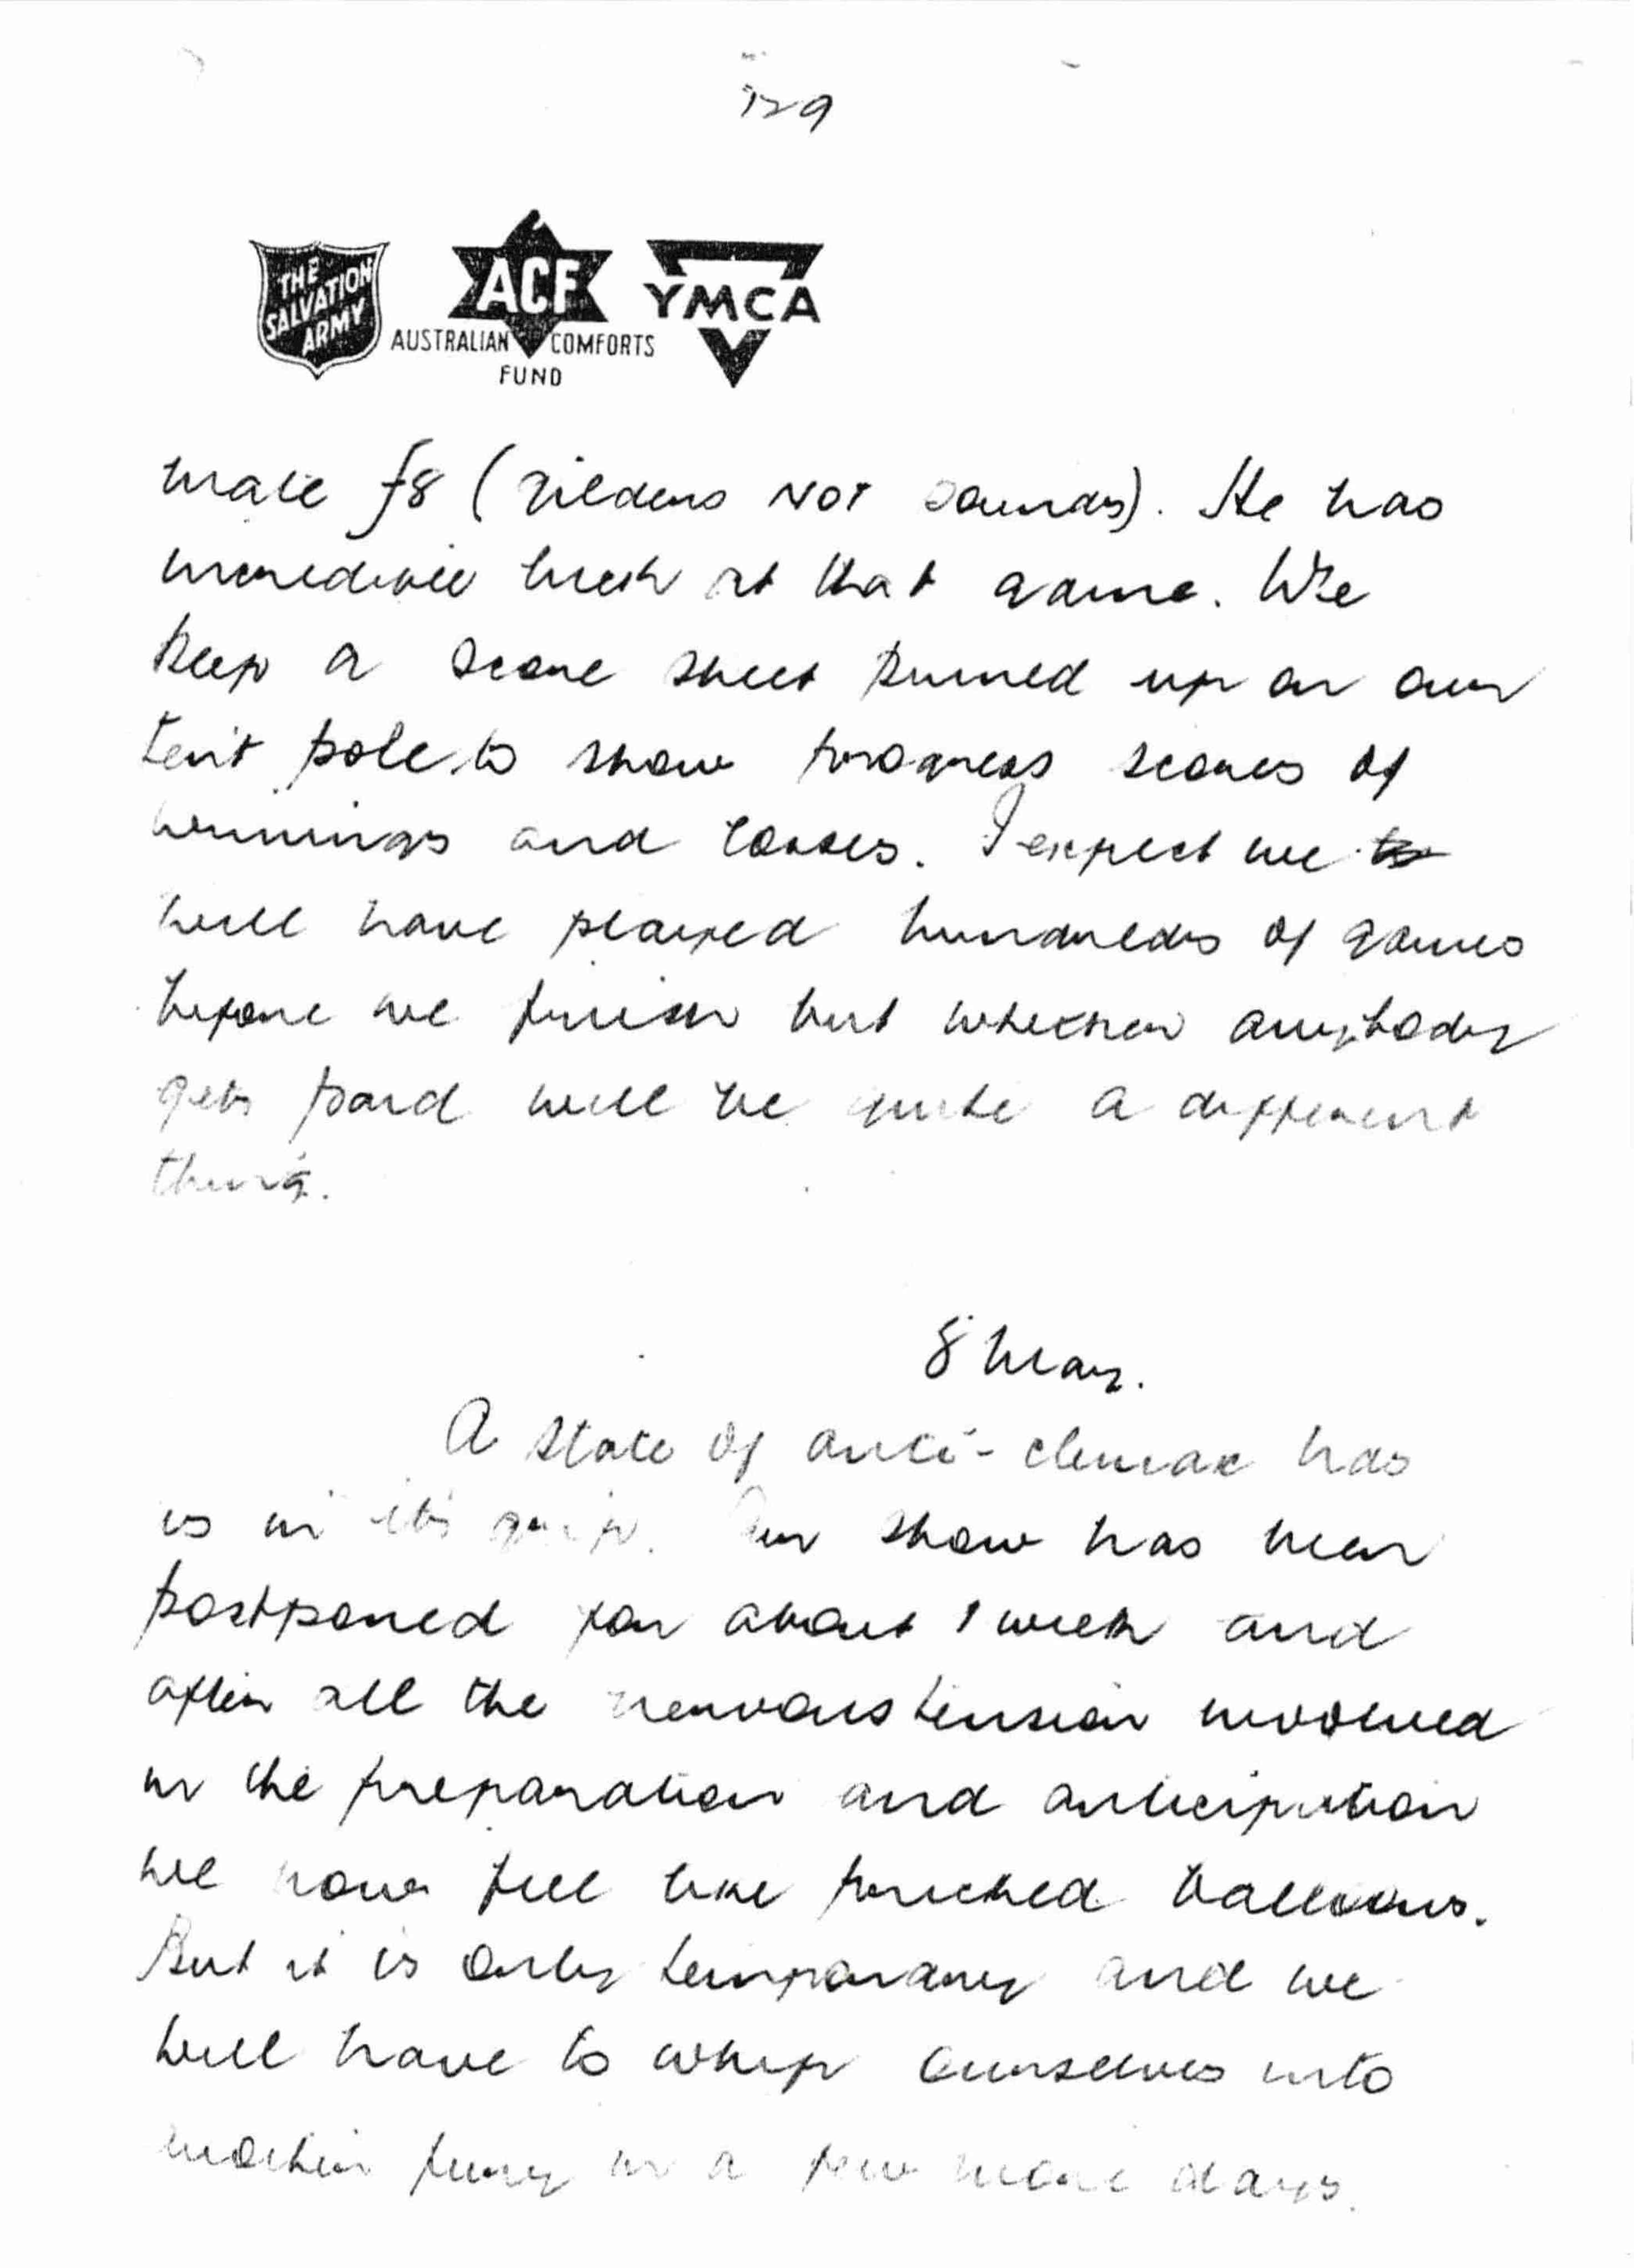 129
THE SALVATION ARMY
ACF
AUSTRALIAN COMFORTS
FUND
YMCA
mate f8 (gilders NOT pounds). He has
incredible luck at that game. We
keep a score sheet pinned up on our
tent pole to show progress scores of
winnings and losses. I expect we
will have played hundreds of games
before we finish but whether anybody
gets paid will be quite a different
thing.
8 May.
A state of anti-climax has
us in its grip. Our show has been
postponed for about 1 week and
after all the nervous tension involved
in the preparation and anticipation
we now feel like pricked balloons.
But it is only temporary and we
will have to whip ourselves into
fury in a few more days.